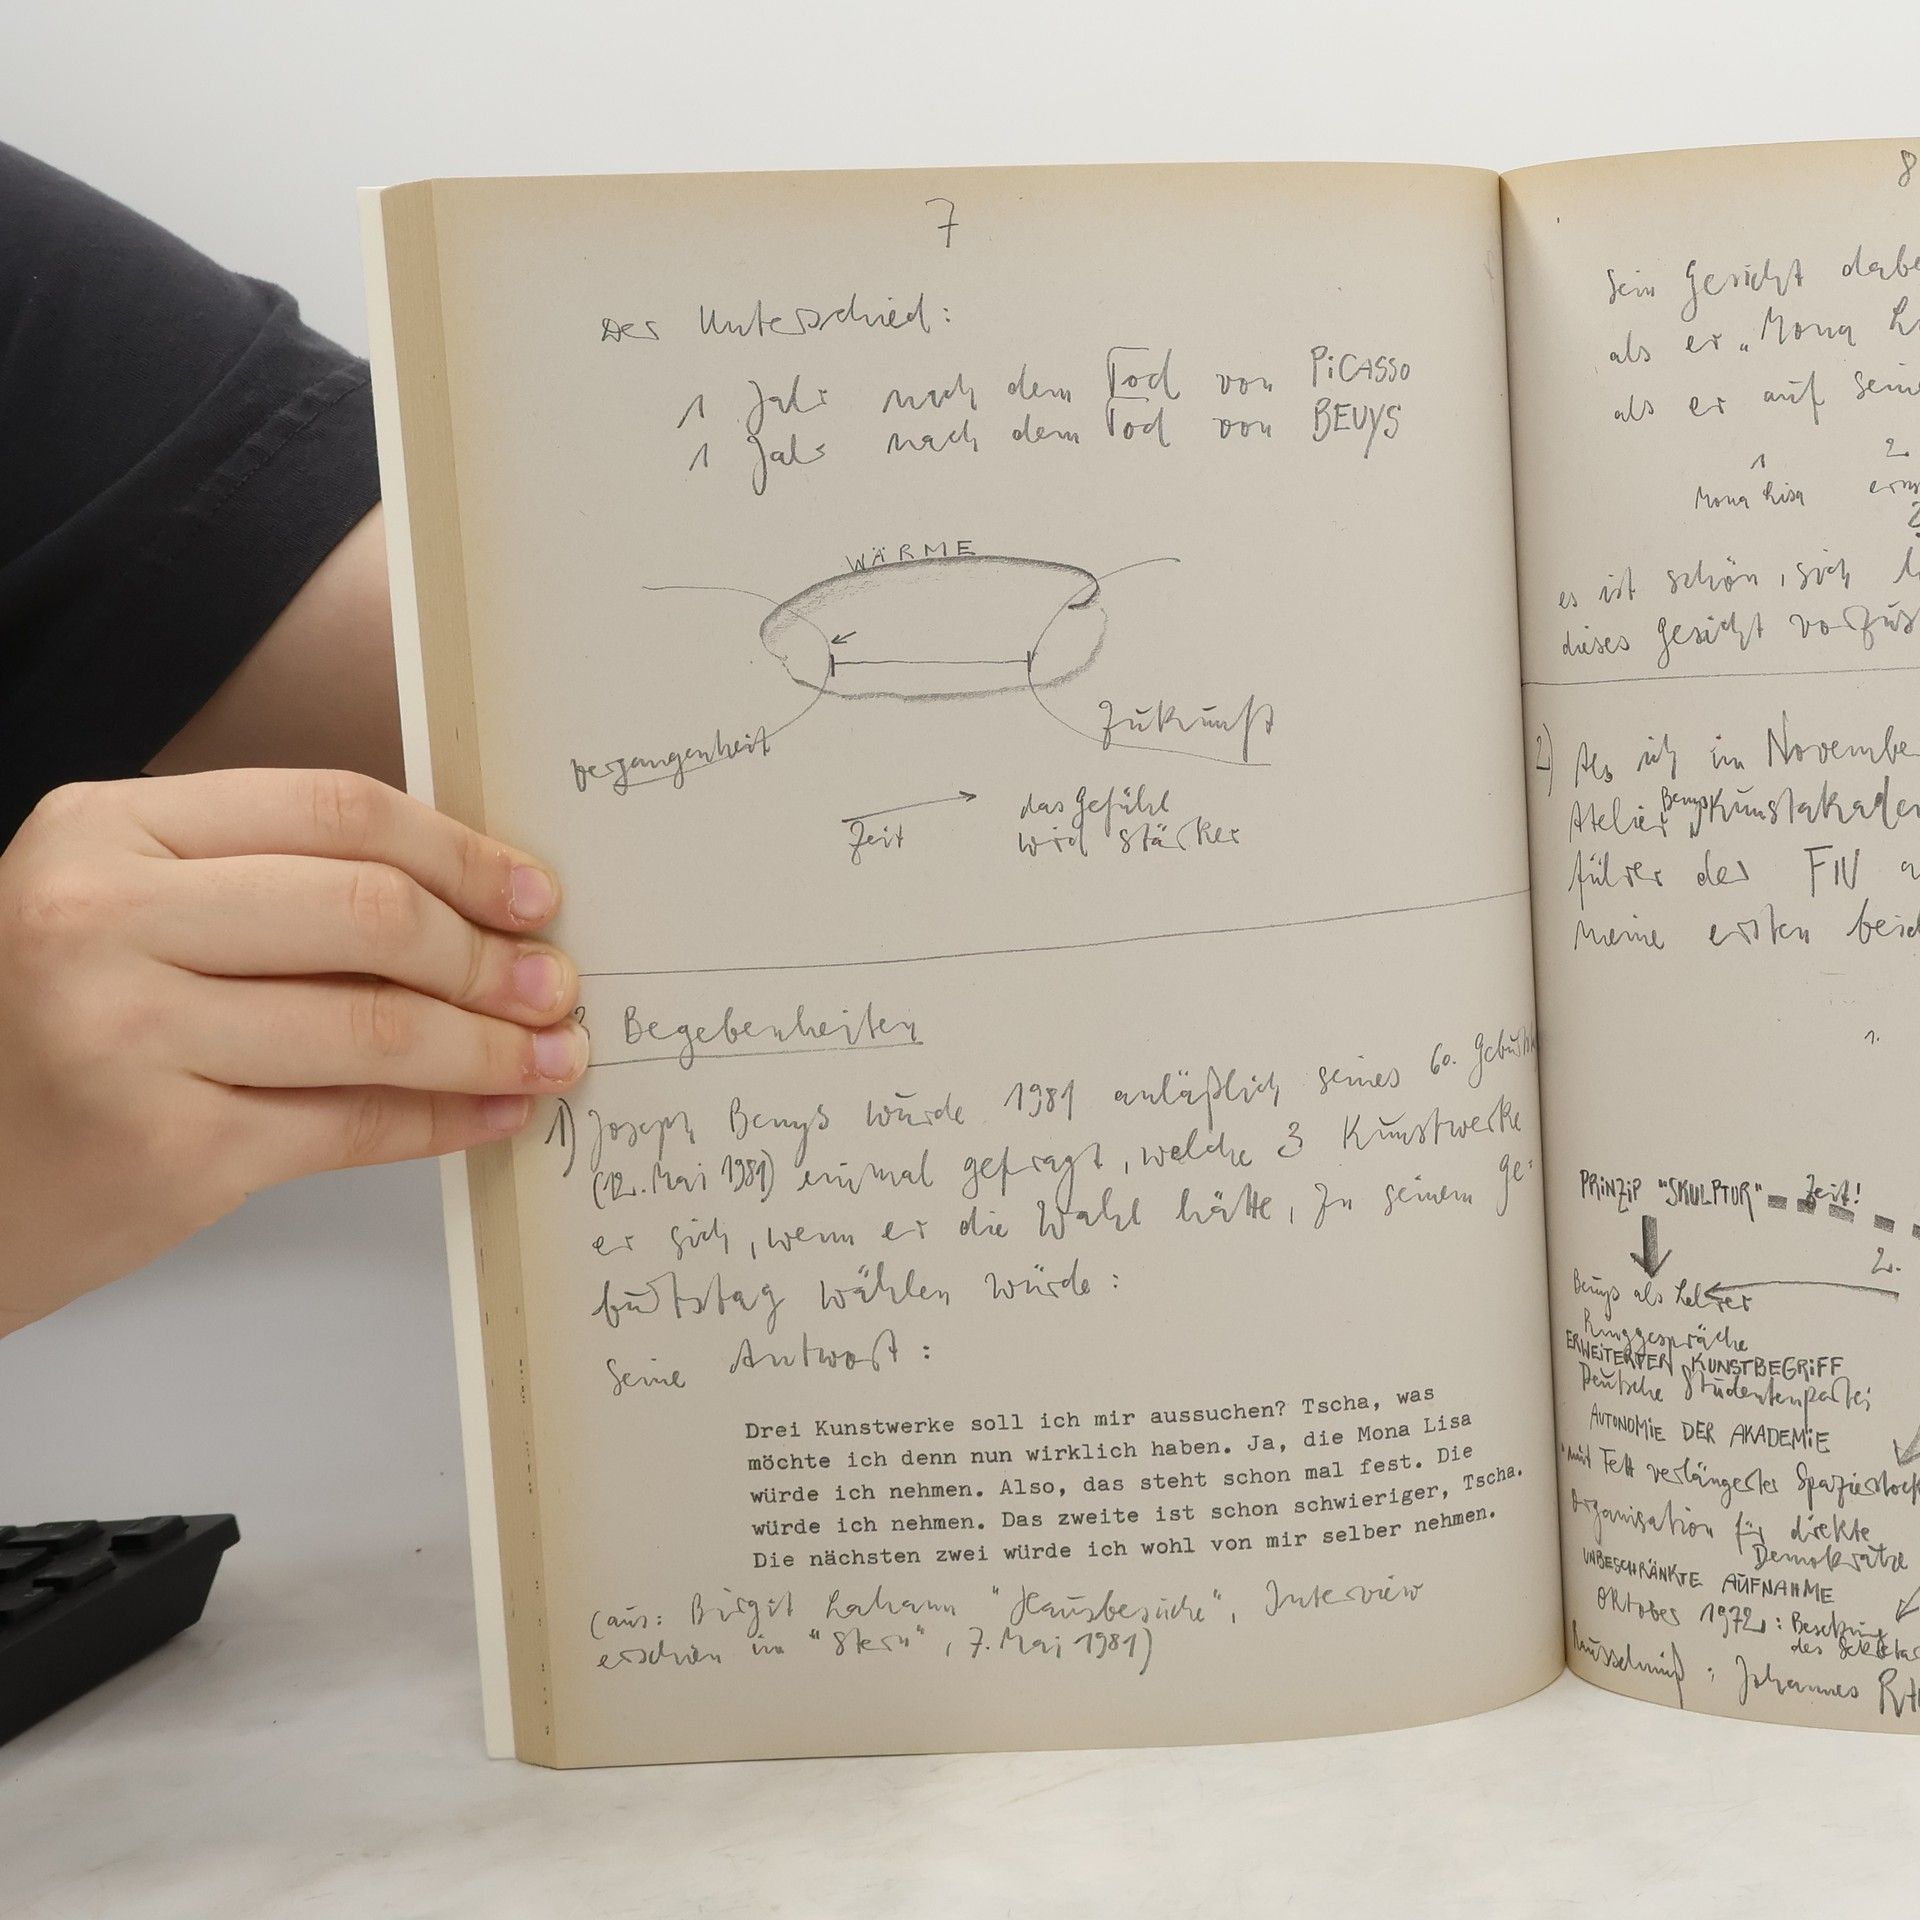 7
Der Unterschied:
1 Jahr nach dem Tod von PiCASSO
1 Jahr nach dem Tod von BEUYS
WÄRME
Vergangenheit
Zukunft
Zeit
das Gefühl
wird stärker
3 Begebenheiten
1) Joseph Beuys wurde 1981 anläßlich seines 60. Geburts
(12. Mai 1981) einmal gefragt, welche 3 Kunstwerke
er sich, wenn er die Wahl hätte, zu seinem Ge-
burtstag wählen würde:
Seine Antwort:
Drei Kunstwerke soll ich mir aussuchen? Tscha, was
möchte ich denn nun wirklich haben. Ja, die Mona Lisa
würde ich nehmen. Also, das steht schon mal fest. Die
würde ich nehmen. Das zweite ist schon schwieriger, Tscha.
Die nächsten zwei würde ich wohl von mir selber nehmen.
(aus: Birgit Lahann "Hausbesuche", Interview
erschien im "Stern", 7. Mai 1981)
8
Sein Gesicht dabe
als er "Mona Li
als er auf seine
1 2.
Mona Lisa
es ist schön, sich
dieses Gesicht vorzus
2) Als ich im Novembe
Atelier Beuys Kunstakade
führer der FIU
meine ersten beid
1.
PRiNZiP "SKULPTUR" Zeit!
2.
Beuys als Lehrer
Ringgespräche
ERWEiTERTER KUNSTBEGRiFF
Deutsche Studentenpartei
AUTONOMiE DER AKADEMiE
mit Fett verlängerter Spazierstock
Organisation für direkte
Demokratie
UNBESCHRÄNKTE AUFNAHME
Oktober 1972: Besetzung
des Sekretar
Rausschmiß: Johannes